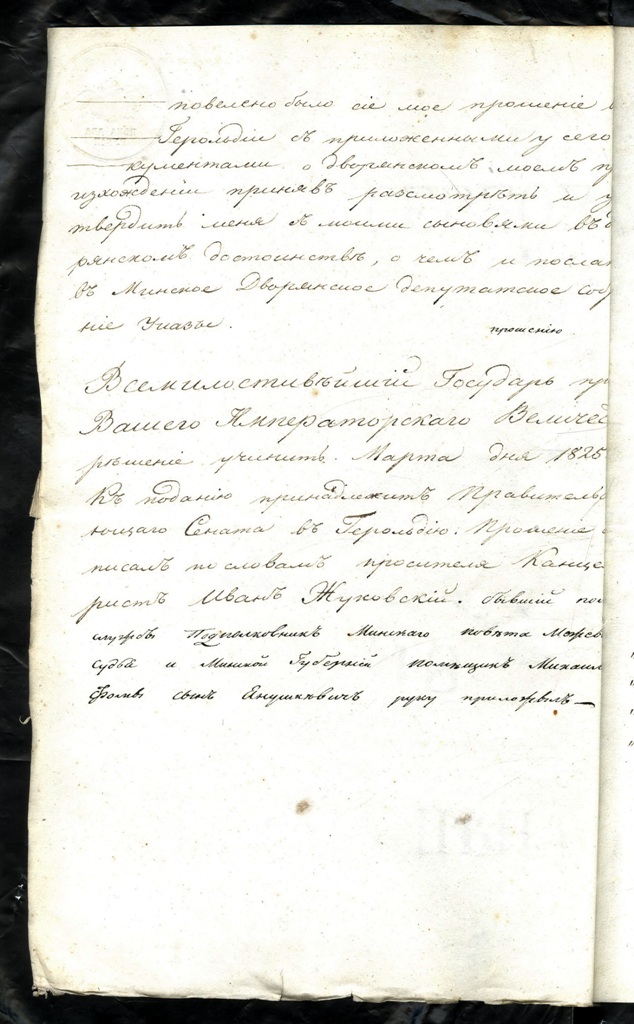 повелено было сіе мое прошеніе
Герольдіи съ приложенными у сего
кументами о дворянскомъ моемъ пр
изхожденіи принявъ разсмотрѣть и у
твердить меня съ моими сыновьями въ д
рянскомъ достоинствѣ, о чемъ и послат
въ Минское Дворянское депутатское собр
ніе Указъ.
прошенію
Всемилостивѣйшій Государь пр
Вашего Императорскаго Величес
рѣшеніе учинить. Марта дня 1825
Къ поданію принадлежитъ Правительс
ющаго Сената въ Герольдію. Прошеніе
писалъ по словамъ просителя Канце
ристъ Иванъ Жуковскій. бывшій по
службѣ Подполковникъ Минскаго повѣта Межев
судья и Минской Губерніи помѣщикъ Михаил
Фомы сынъ Янушкевичъ руку приложилъ —